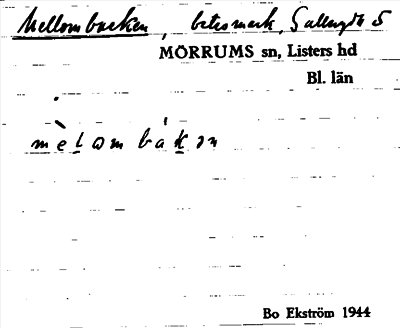 Mellombacken, betesmark, Sälleryd 5
MÖRRUMS sn, Listers hd
Bl. län
mèlombakən
Bo Ekström 1944